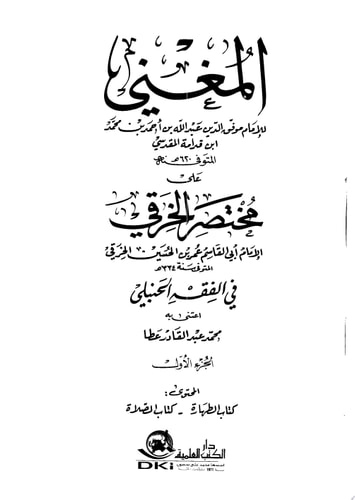 المغني
للإمام موفق الدين عبد الله بن أحمد بن محمد
ابن قدامة المقدسي
المتوفى ٦٢٠هـ
على
مختصر الخرقي
الإمام أبي القاسم عمر بن الحسين الخرقي
المتوفى سنة ٣٣٤هـ
في الفقه الحنبلي
اعتنى به
محمد عبد القادر عطا
الجزء الأول
المحتوى:
كتاب الطهارة - كتاب الصلاة
دار
الكتب العلمية
DKi